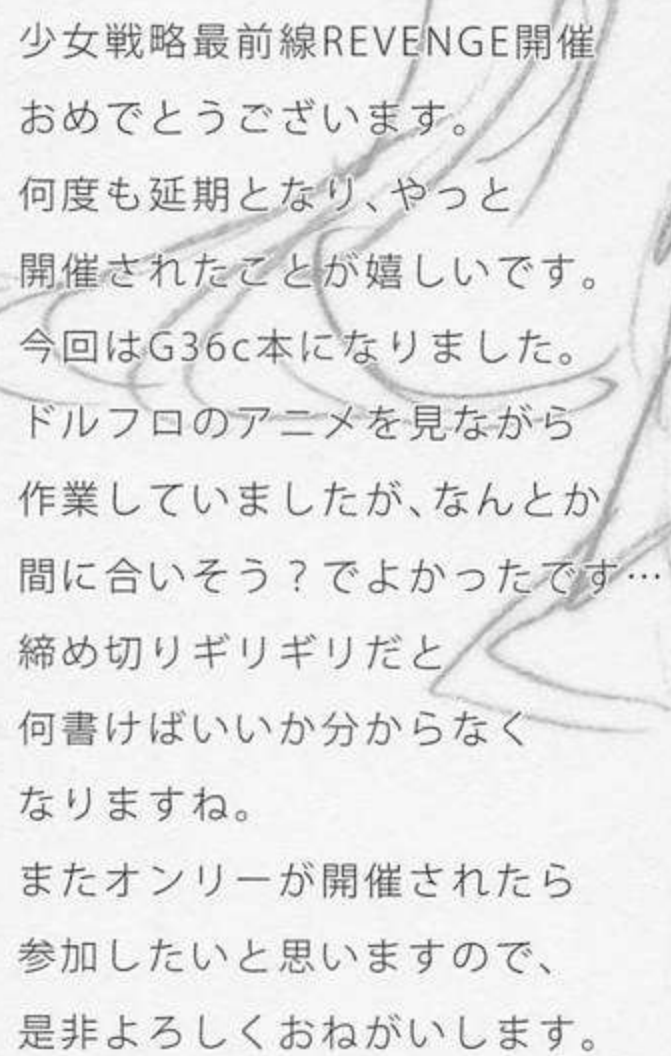 少女戦略最前線REVENGE開催
おめでとうございます。
何度も延期となり、やっと
開催されたことが嬉しいです。
今回はG36c本になりました。
ドルフロのアニメを見ながら
作業していましたが、なんとか
間に合いそう？でよかったです…
締め切りギリギリだと
何書けばいいか分からなく
なりますね。
またオンリーが開催されたら
参加したいと思いますので、
是非よろしくおねがいします。